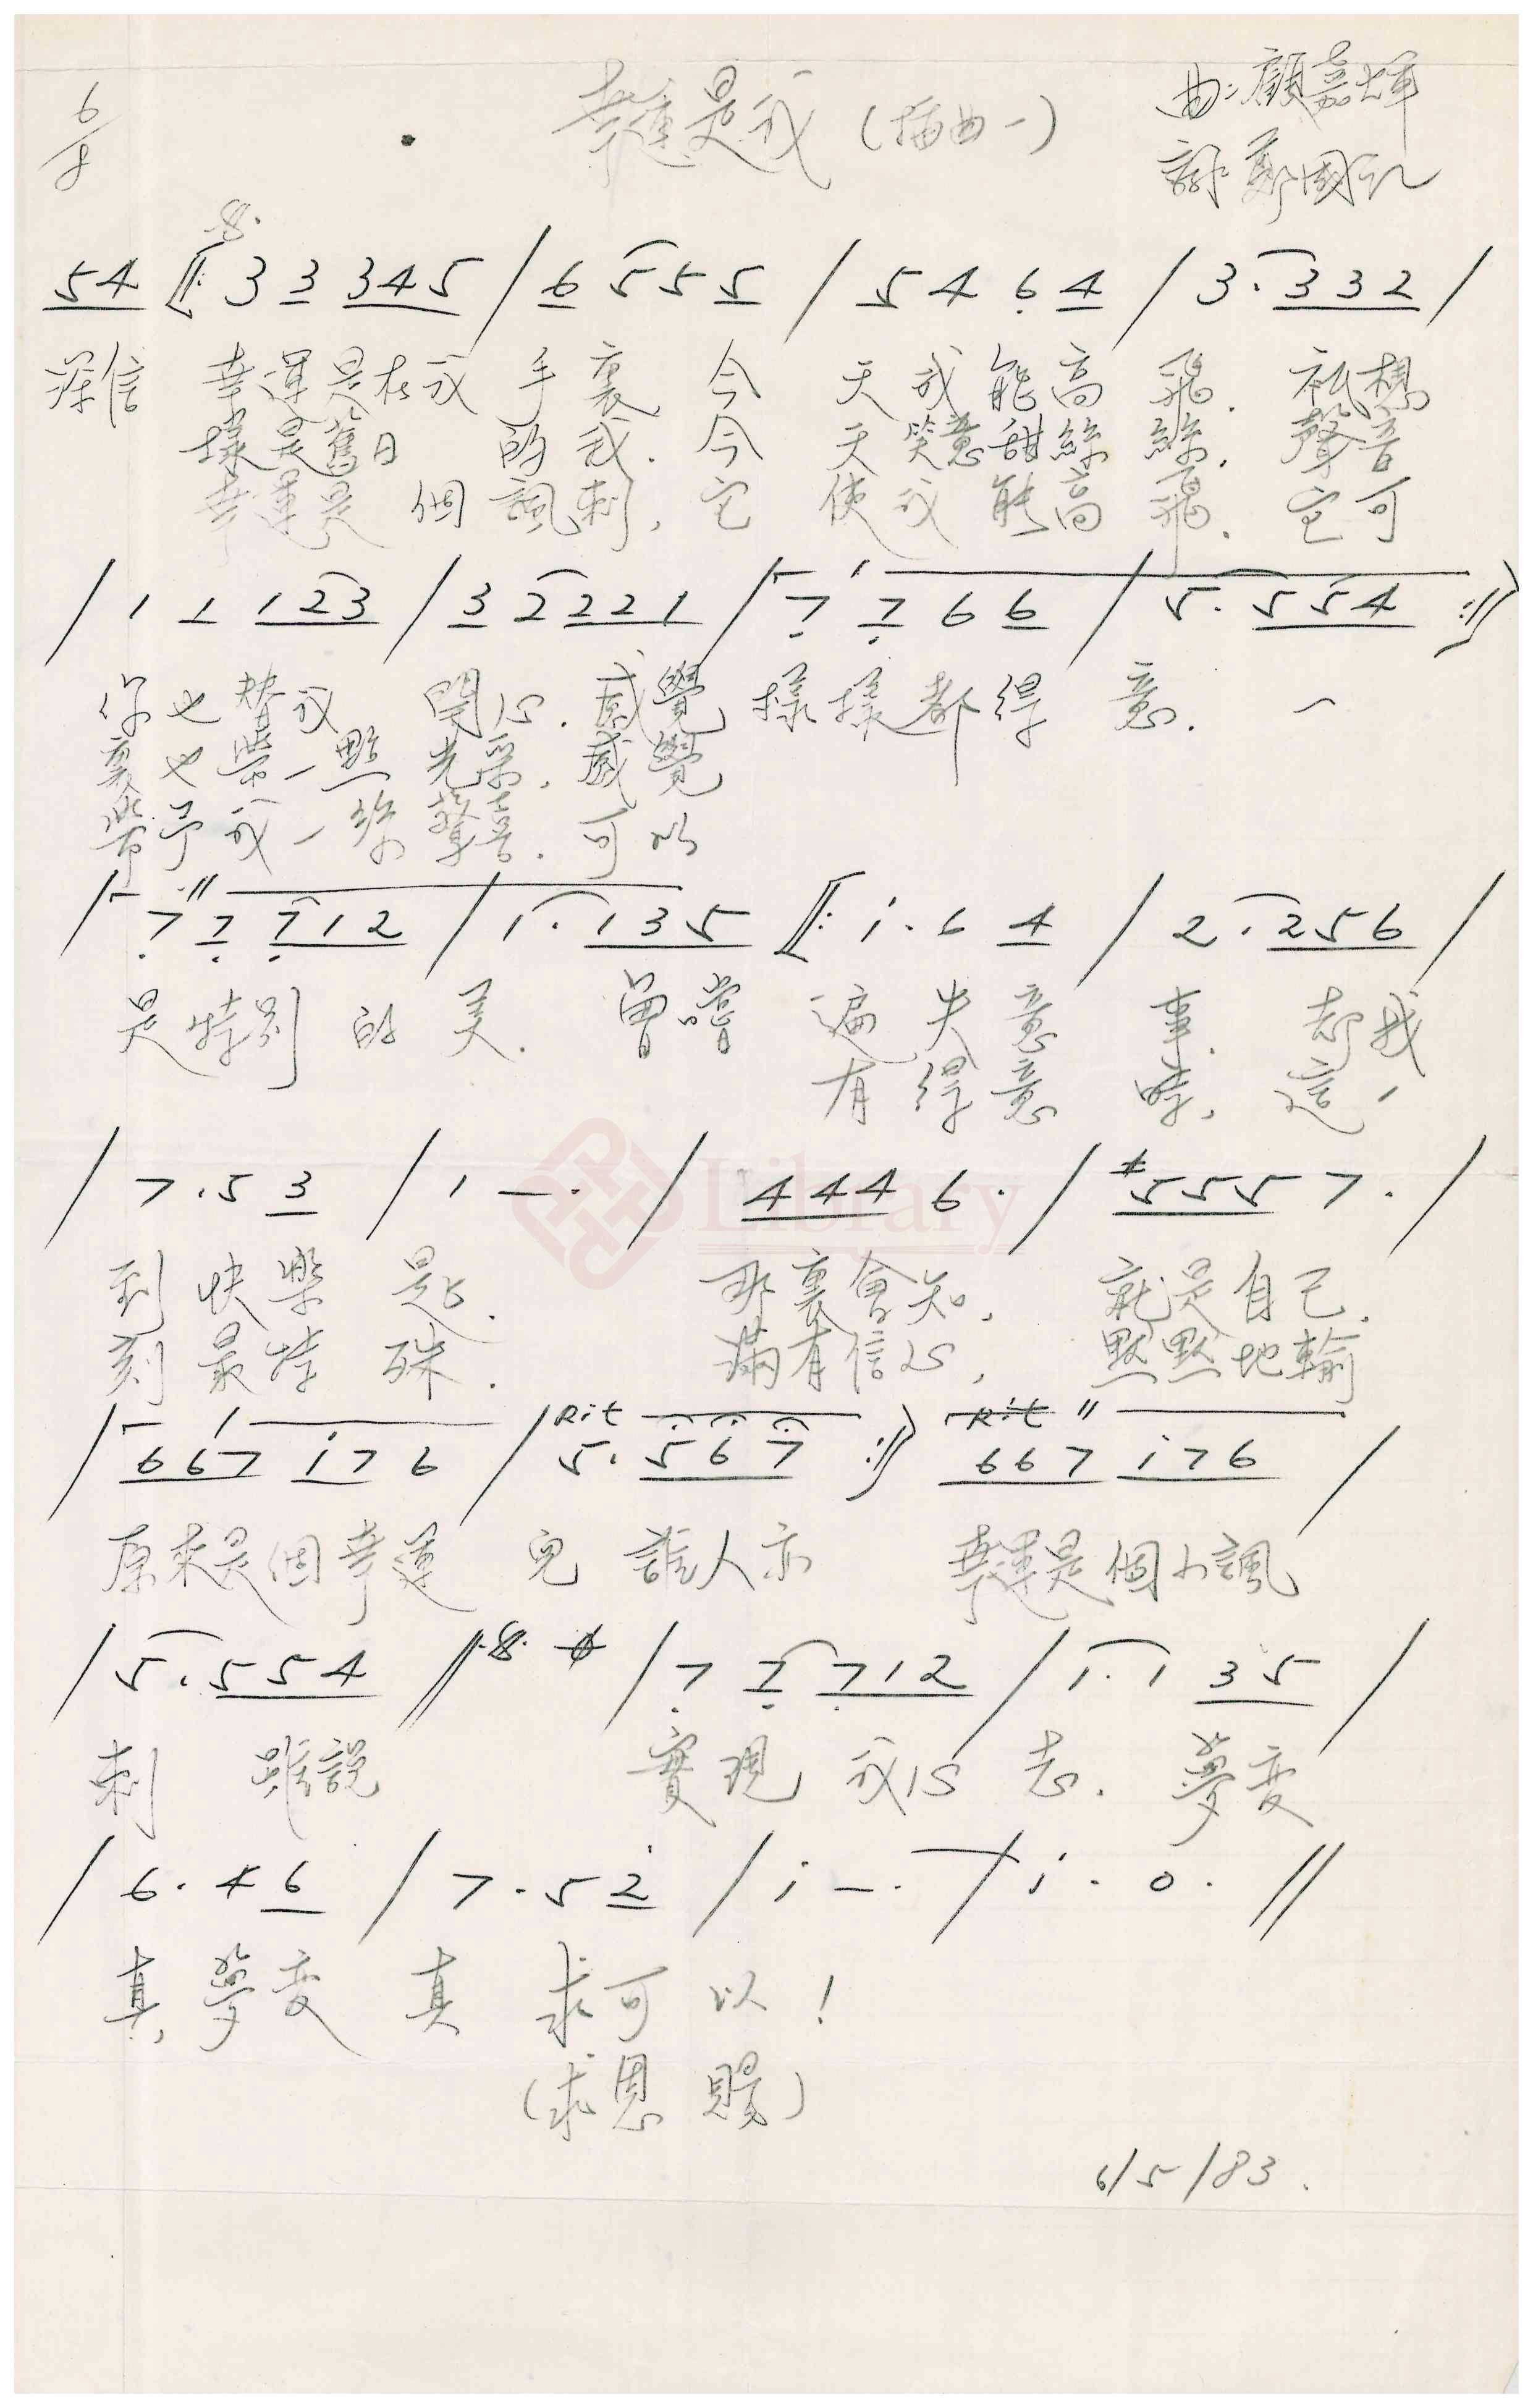 6/8
幸運是我（插曲一）
曲：顧嘉煇
詞：鄭國江
5 4 ‖: 3 3 3 4 5 / 6 5 5 5 / 5 4 6 4 / 3 . 3 3 2 /
深信 幸運是在我手裏，今天我能高飛．祇想
樣是舊日的我．今天笑意甜絲絲．聲音
幸運是個諷刺，它使我能高飛．它可
/ 1 1 1 2 3 / 3 2 2 2 1 / 7 7 6 6 / 5 . 5 5 4 :‖
你也替我開心．感覺樣樣都得意．一
裏也帶一點光采．感覺
帶予我一絲驚喜．可以
/ 7 7 7 1 2 / 1 . 1 3 5 ‖: i . 6 4 / 2 . 2 5 6 /
是特別的美．曾嚐遍失意事．却我
有得意時，這一
/ 7 . 5 3 / 1 — . / 4 4 4 6 . / #5 5 5 7 . /
到快樂匙．那裏會知，就是自己．
刻最特殊．滿有信心，默默地輸
/ 6 6 7 i 7 6 / Rit 5 . 5 6 7 :‖ Rit 6 6 7 i 7 6 /
原來是個幸運兒 誰人亦 幸運是個小諷
/ 5 . 5 5 4 ‖ / 7 7 7 1 2 / 1 . 1 3 5 /
刺 雖說 實現我心志．夢變
/ 6 . 4 6 / 7 . 5 2 / i — . / i . 0 . ‖
真，夢變真 求可以！
（求恩賜）
6/5/83 .
Library